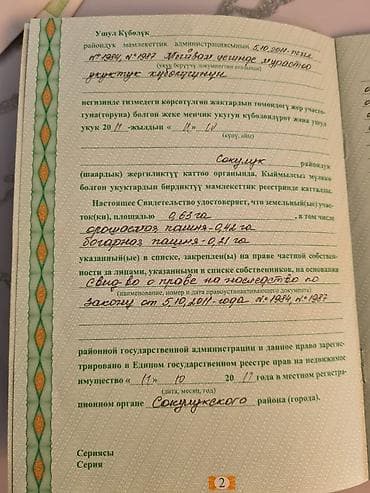 Ушул Күбөлүк
райондук мамлекеттик администрациясынын 5.10.2011-
№1984, №1987 мурастоо
(укук берүүчү документтин аталышы)
укуктук күбөлүгүнүн
негизинде тизмедеги көрсөтүлгөн жактардын төмөндөгү жер участо-
гуна(торуна) болгон жеке менчик укугун күбөлөндүрөт жана ушул
укук 20 11 -жылдын « 11 » 10
(күнү, айы)
Сокулук райондук
(шаардык) жергиликтүү каттоо органында, Кыймылсыз мүлккө
болгон укуктардын бирдиктүү мамлекеттик реестринде катталды.
Настоящее Свидетельство удостоверяет, что земельный(ые) учас-
ток(ки), площадью 0,63 га , в том числе
орошаемая пашня-0,42 га
богарная пашня-0,21 га
указанный(ые) в списке, закреплен(ы) на праве частной собствен-
ности за лицами, указанными в списке собственников, на основании
Свид-во о праве на наследство по
(наименование, номер и дата правоустанавливающего документа)
закону от 5.10.2011-года №1984, №1987
районной государственной администрации и данное право зарегис-
трировано в Едином государственном реестре прав на недвижимое
имущество « 11 » 10 20 11 года в местном регистра-
(дата, месяц, год)
ционном органе Сокулукского района (города).
Сериясы
Серия
2